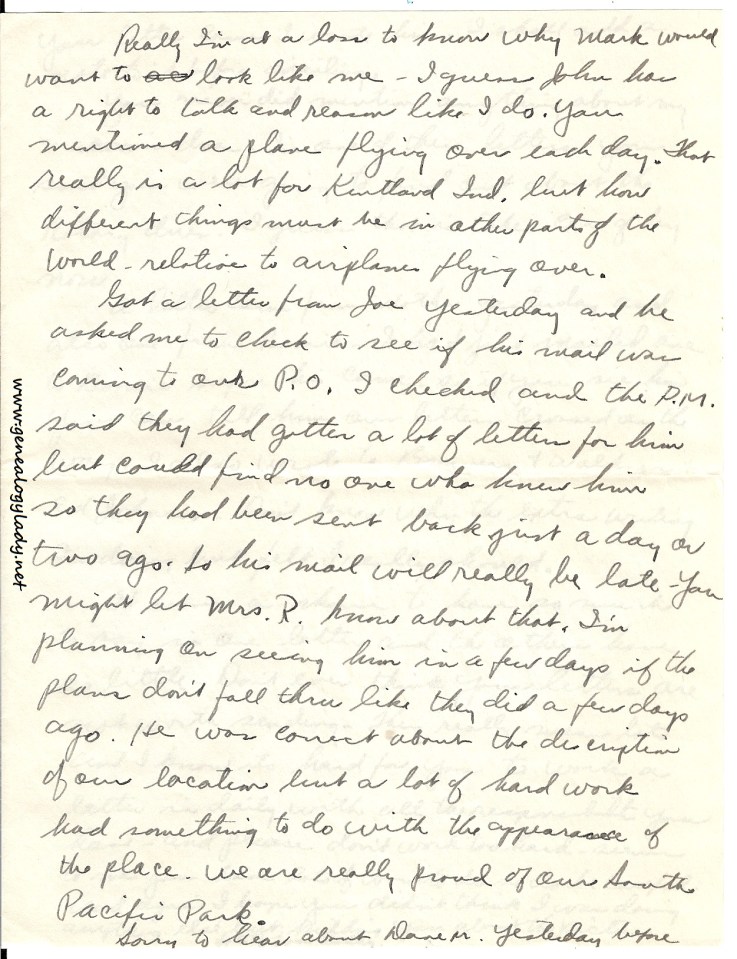 Really I'm at a loss to know why Mark would
want to look like me - I guess John has
a right to talk and reason like I do. You
mentioned a plane flying over each day. That
really is a lot for Kentland Ind. but how
different things must be in other parts of the
world - relative to airplanes flying over.
Got a letter from Joe yesterday and he
asked me to check to see if his mail was
coming to our P.O. I checked and the P.M.
said they had gotten a lot of letters for him
but could find no one who knew him
so they had been sent back just a day or
two ago. So his mail will really be late - You
might let Mrs. R. know about that. I'm
planning on seeing him in a few days if the
plans don't fall thru like they did a few days
ago. He was correct about the discription
of our location but a lot of hard work
had something to do with the appearance of
the place. We are really proud of our South
Pacific Park.
Sorry to hear about Dave M. Yesterday before
www.genealogylady.net